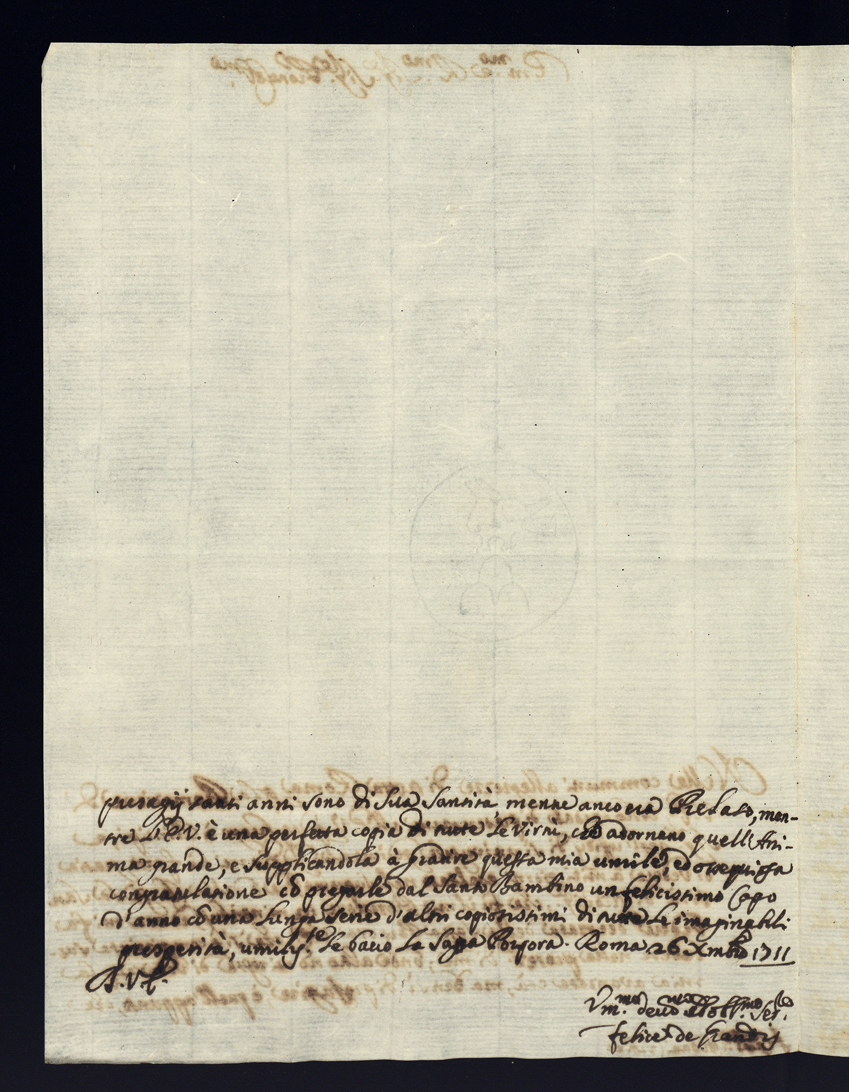 presagij tanti anni sono di Sua Santità mentre anco era Prelato, men-
tre l'E.V. è una perfetta copia di tute le virtù, che adornano quell'Ani-
ma grande, e supplicandola à gradire questa mia umile, ed ossequiosa
congratulatione cō pregarle dal Santo Bambino un felicissimo Capo
d'anno cō una lunga serie d'altri copiosissimi di tute le imaginabili
prosperità, umiliss.te le bacio la Sagra Porpora. Roma 26 Xmbre 1711
D.V.E.
Vm.mo devo.mo et obbl.mo Ser.
felice de Grandis